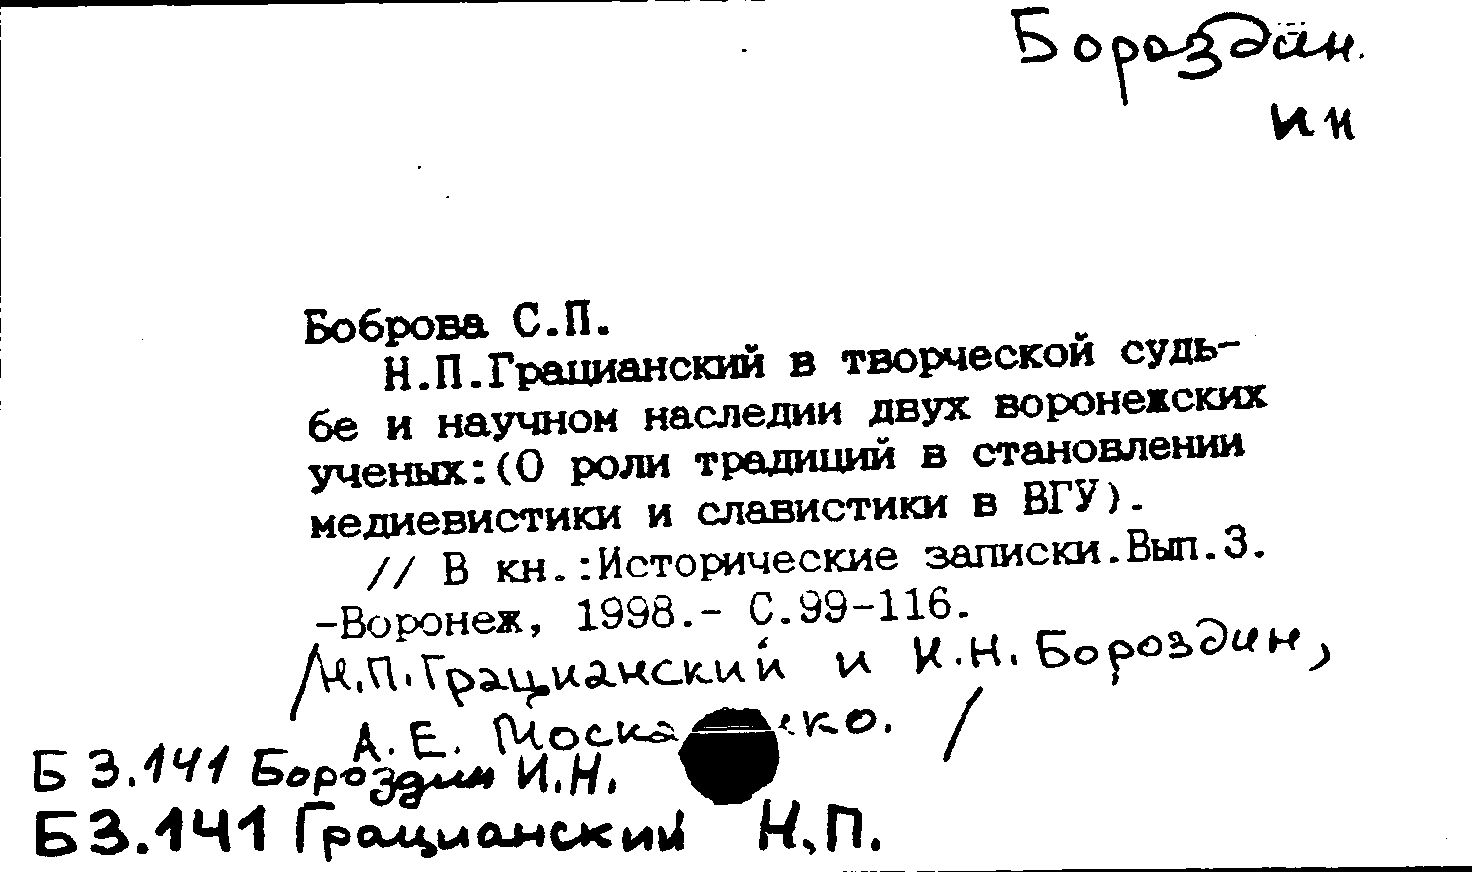 Бороздин.
ИН
Боброва С.П.
Н.П.Грацианский в творческой судь-
бе и научном наследии двух воронежских
ученых:(О роли традиций в становлении
медиевистики и славистики в ВГУ).
// В кн.:Исторические записки.Вып.3.
-Воронеж, 1998.- С.99-116.
/Н.П.Грацианский и И.Н.Бороздин,
А.Е. /
Б 3.141 Бороздин И.Н.
Б3.141 Грацианский Н.П.